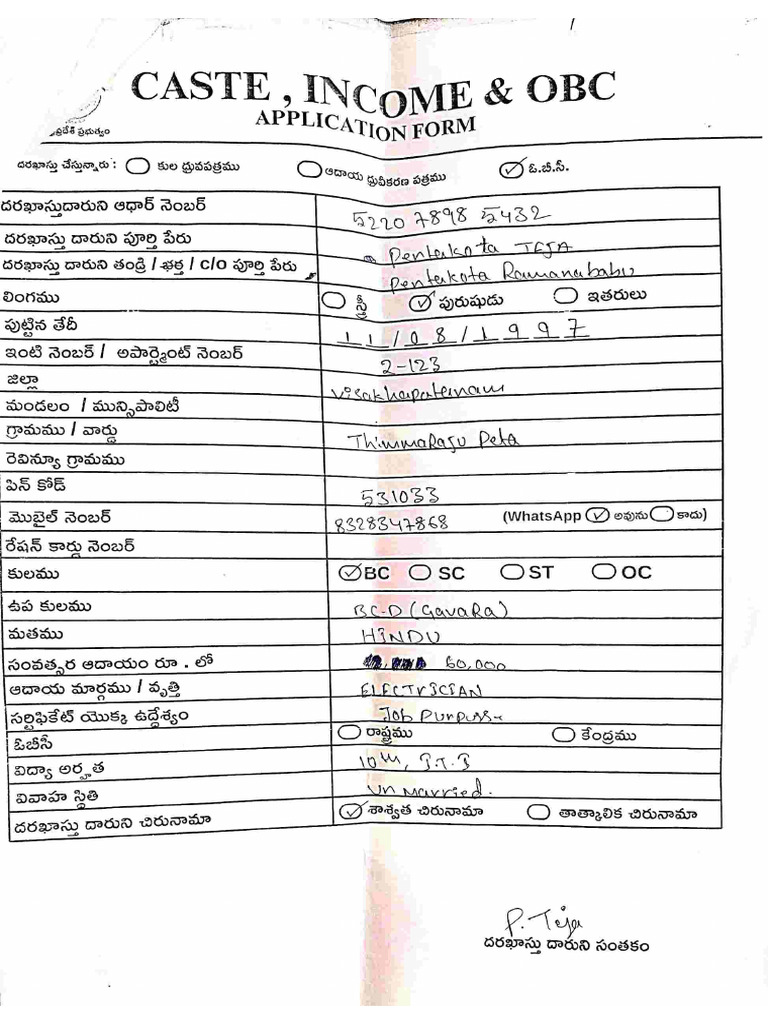 CASTE , INCOME & OBC
APPLICATION FORM
ప్రభుత్వం
దరఖాస్తు చేస్తున్నారు : కుల ధ్రువపత్రము ఆదాయ ధ్రువీకరణ పత్రము ఓ.బి.సి.
దరఖాస్తుదారుని ఆధార్ నెంబర్ 5220 7898 5432
దరఖాస్తు దారుని పూర్తి పేరు Pentakota TEJA
దరఖాస్తు దారుని తండ్రి / భర్త / c/o పూర్తి పేరు Pentakota Ramanababu
లింగము స్త్రీ పురుషుడు ఇతరులు
పుట్టిన తేదీ 11/08/1997
ఇంటి నెంబర్ / అపార్ట్మెంట్ నెంబర్ 2-123
జిల్లా Visakhapatnam
మండలం / మున్సిపాలిటీ
గ్రామము / వార్డు Thimmaraju Peta
రెవిన్యూ గ్రామము
పిన్ కోడ్ 531033
మొబైల్ నెంబర్ 8328347868 (WhatsApp అవును కాదు)
రేషన్ కార్డు నెంబర్
కులము BC SC ST OC
ఉప కులము BC-D (GavaRa)
మతము HINDU
సంవత్సర ఆదాయం రూ . లో 60,000
ఆదాయ మార్గము / వృత్తి ELECTRICIAN
సర్టిఫికేట్ యొక్క ఉద్దేశ్యం Job Purpose
ఓబీసీ రాష్ట్రము కేంద్రము
విద్యా అర్హత 10th, I.T.I
వివాహ స్థితి Un Married.
దరఖాస్తు దారుని చిరునామా శాశ్వత చిరునామా తాత్కాలిక చిరునామా
P. Teja
దరఖాస్తు దారుని సంతకం